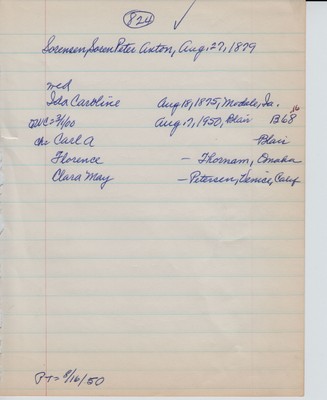 824
Sorensen, Soren Peter Anton, Aug. 27, 1879
wed
Ida Caroline Aug 18, 1875, Modale, Ia.
DWC=3/1/00 Aug. 7, 1950, Blair B68 16
Ch= Carl A Blair
Florence — Thornam, Omaha
Clara May — Petersen, Venice, Calif
PT= 8/16/50